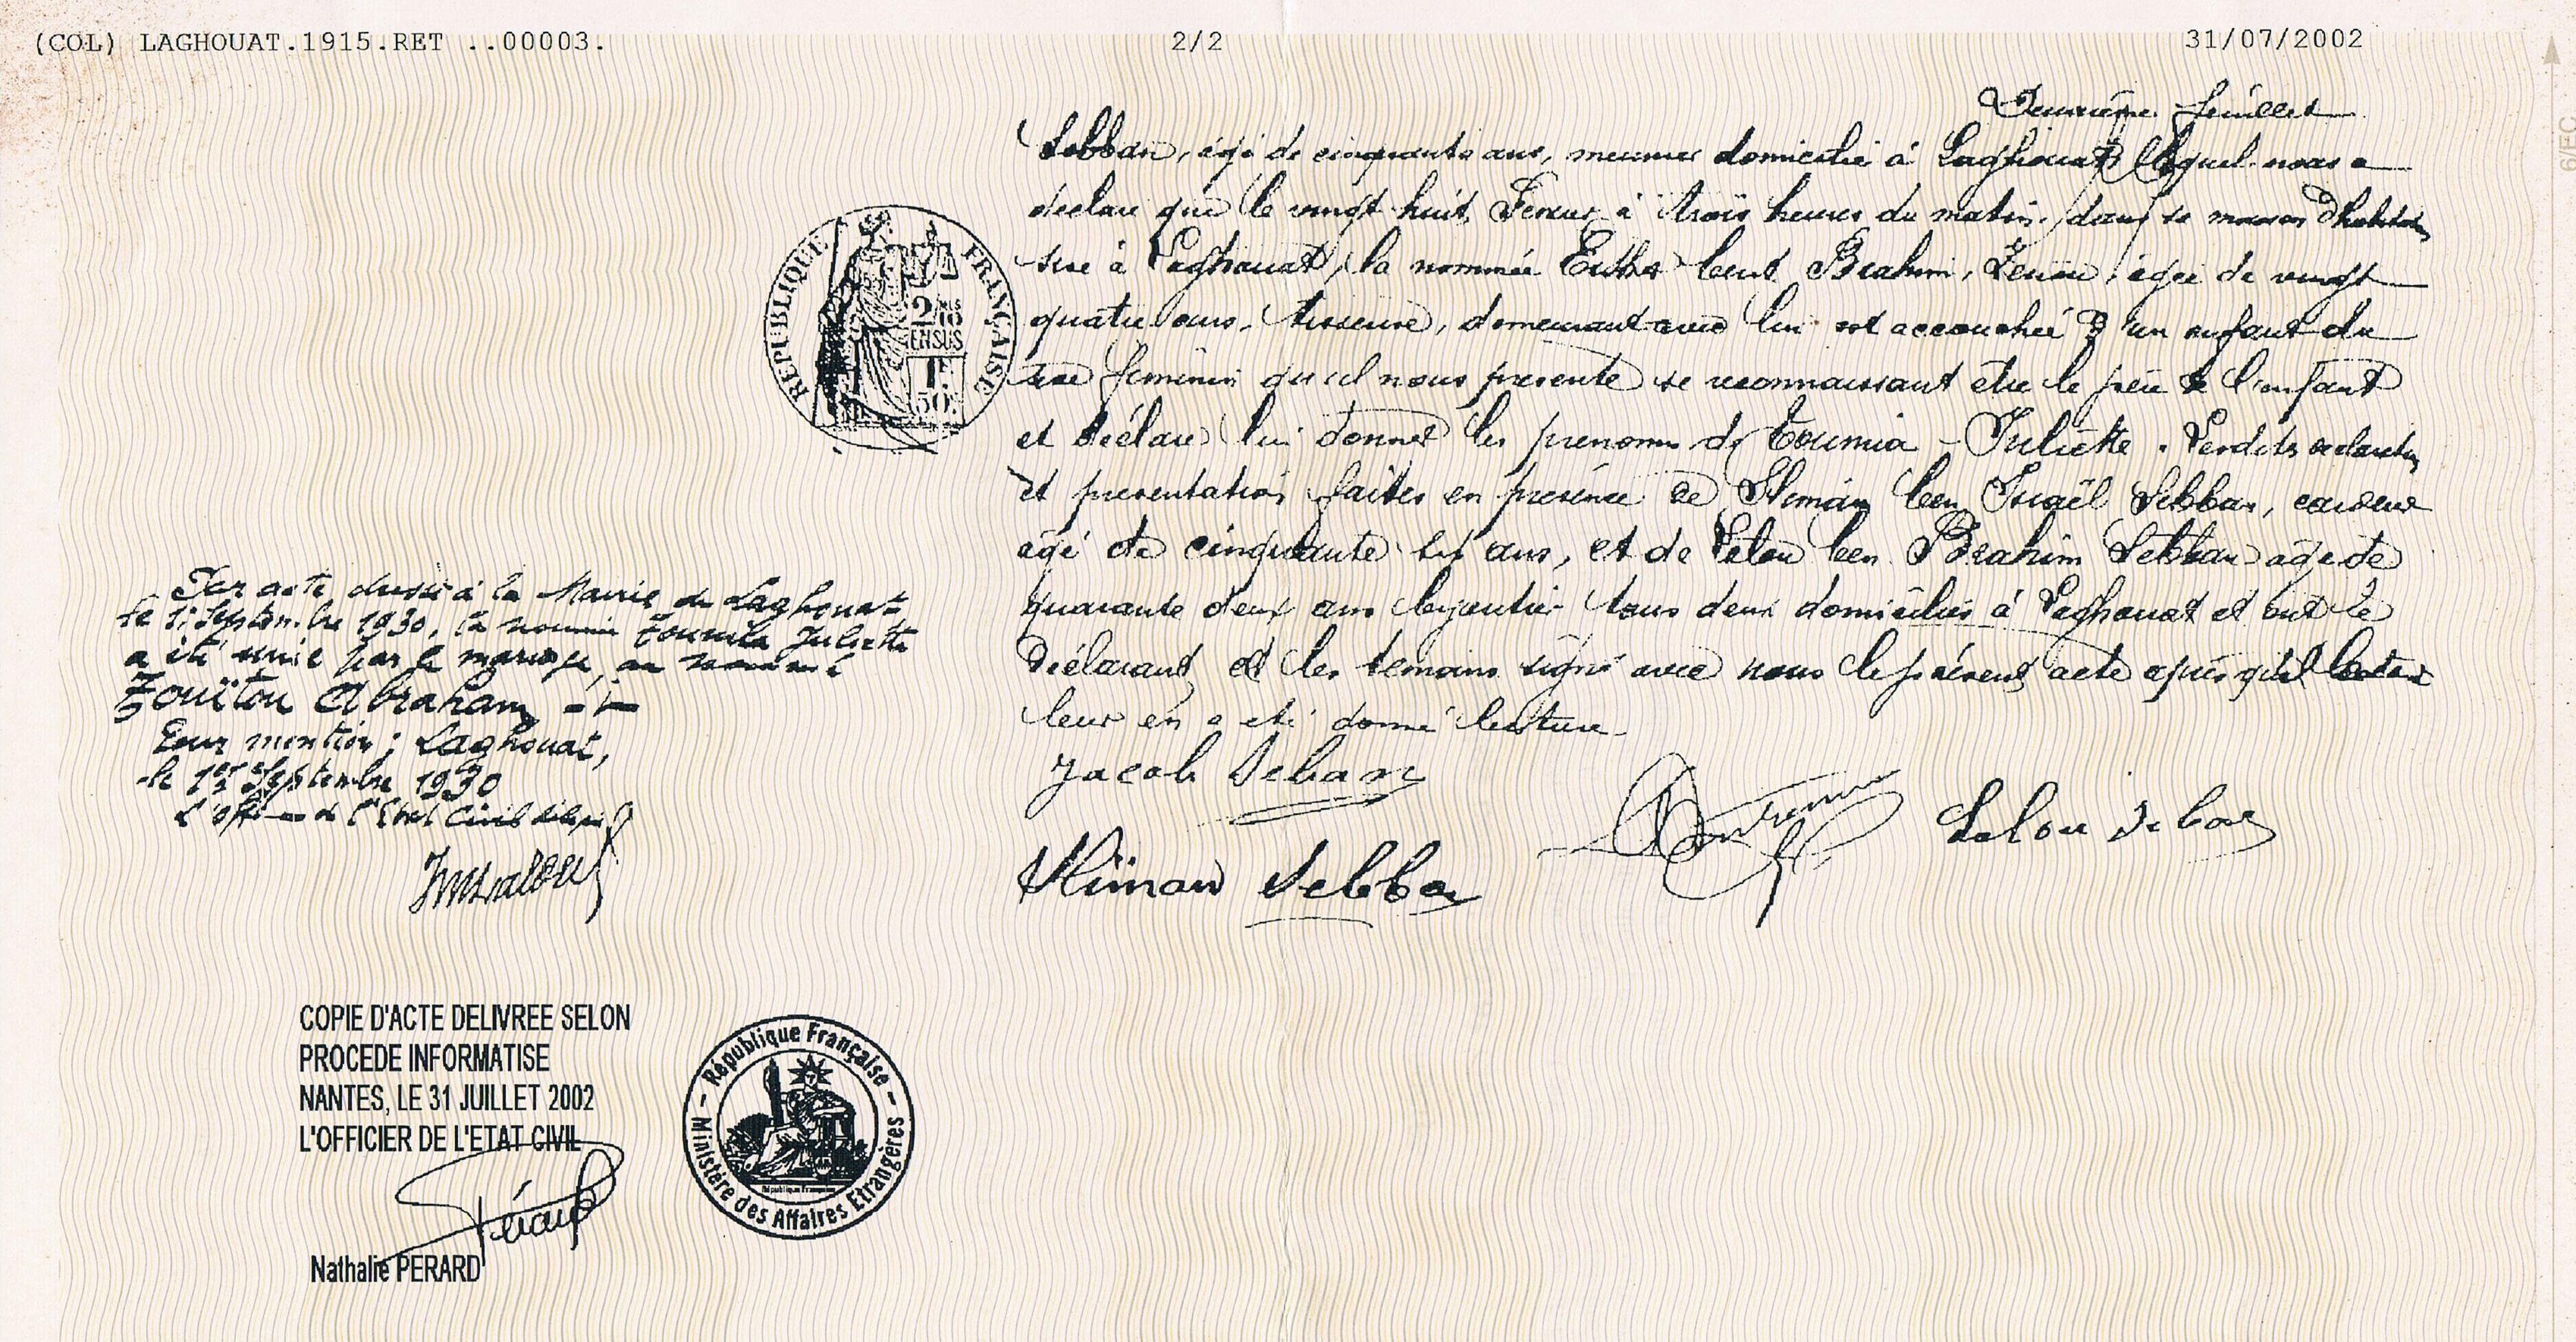 (COL) LAGHOUAT.1915.RET ..00003.
2/2
31/07/2002
Deuxième feuillet
Sebban, âgé de cinquante ans, meunier domicilié à Laghouat, lequel nous a
déclaré que le vingt huit Fevrier à trois heures du matin, dans sa maison d'habitation
sise à Laghouat, la nommée Esther bent Brahim, Zenou, âgée de vingt
quatre ans, tisseuse, demeurant avec lui est accouchée d'un enfant du
sexe féminin qu'il nous presente se reconnaissant être le père de l'enfant
et déclare lui donner les prenoms de Toumia - Juliette. Lesdites declaration
et presentation faites en présence de Sliman ben Israël Sebban, cardeur
agé de cinquante six ans, et de Lalou ben Brahim Sebban age de
quarante deux ans bijoutier tous deux domiciliés à Laghouat et ont le
Déclarant et les temoins signé avec nous le présent acte après qu'il
leur en a été donné lecture.
Jacob Seban
Lalou Seban
Sliman Sebban
REPUBLIQUE FRANÇAISE
2/10
EN SUS
1F
50c
Par acte dressé à la Mairie de Laghouat
le 1er Septembre 1930, la nommée Toumia Juliette
a été unie par le mariage, au nommé
Zouïtou Abraham -/-
Pour mention; Laghouat,
le 1er Septembre 1930
L'officier de l'Etat Civil délégué
COPIE D'ACTE DELIVREE SELON
PROCEDE INFORMATISE
NANTES, LE 31 JUILLET 2002
L'OFFICIER DE L'ETAT CIVIL
Pérard
Nathalie PERARD
République Française
Ministère des Affaires Etrangères
6/EC